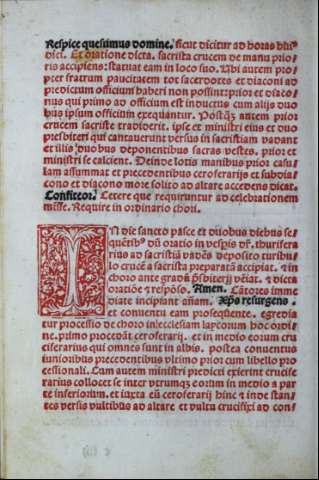 Respice quesumus domine. sicut dicitur ad horas bñdi
dici. Et oratione dicta. sacrista crucem de manu prio
ris accipiens: statuat eam in loco suo. Ubi autem pro
pter fratrum paucitatem tot sacerdotes et diaconi ad
predictum officium haberi non possint: prior et diaco
nus qui primo ad officium est inductus cum alijs duo
bus ipsum officium exequantur. Postq̃ autem prior
crucem sacriste tradiderit. ipse et ministri eius et duo
presbiteri qui cantauerunt versus in sacristiam vadant
et illis duobus deponentibus sacras vestes. prior et
ministri se calcient. Deinde lotis manibus prior casu
lam assummat et precedentibus ceroferarijs et subdia
cono et diacono more solito ad altare accedens dicat.
Confiteor. Cetere que requiruntur ad celebrationem
misse. Require in ordinario chori.
IN die sancto pasce et duobus diebus se
quẽtibꝰ dũ oratio in vesp̃is dr̃. thurifera
rius ad sacristiã vadẽs deposito turibu
lo crucẽ a sacrista preparatã accipiat. ⁊ in
choro ante gradũ p̃sbiterij vẽiat. ⁊ dicta
oratiõe ⁊ respõso. Amen. Cãtores imme
diate incipiant añam. Xp̃s resurgens.
et conuentu eam prosequẽte. egredia
tur processio de choro in ecclesiam laycorum hoc ordi
ne. primo procedãt ceroferarij. et in medio eorum cru
ciferarius qui omnes sunt in albis. postea conuentus
iunioribus precedentibus vltimo prior cum libello pro
cessionali. Cum autem ministri predicti exierint crucife
rarius collocet se inter vtrumqꝫ eorum in medio a par
te inferiorum. et iuxta eũ ceroferarij hinc ⁊ inde stan
tes versis vultibus ad altare et vultu crucifixi ad con